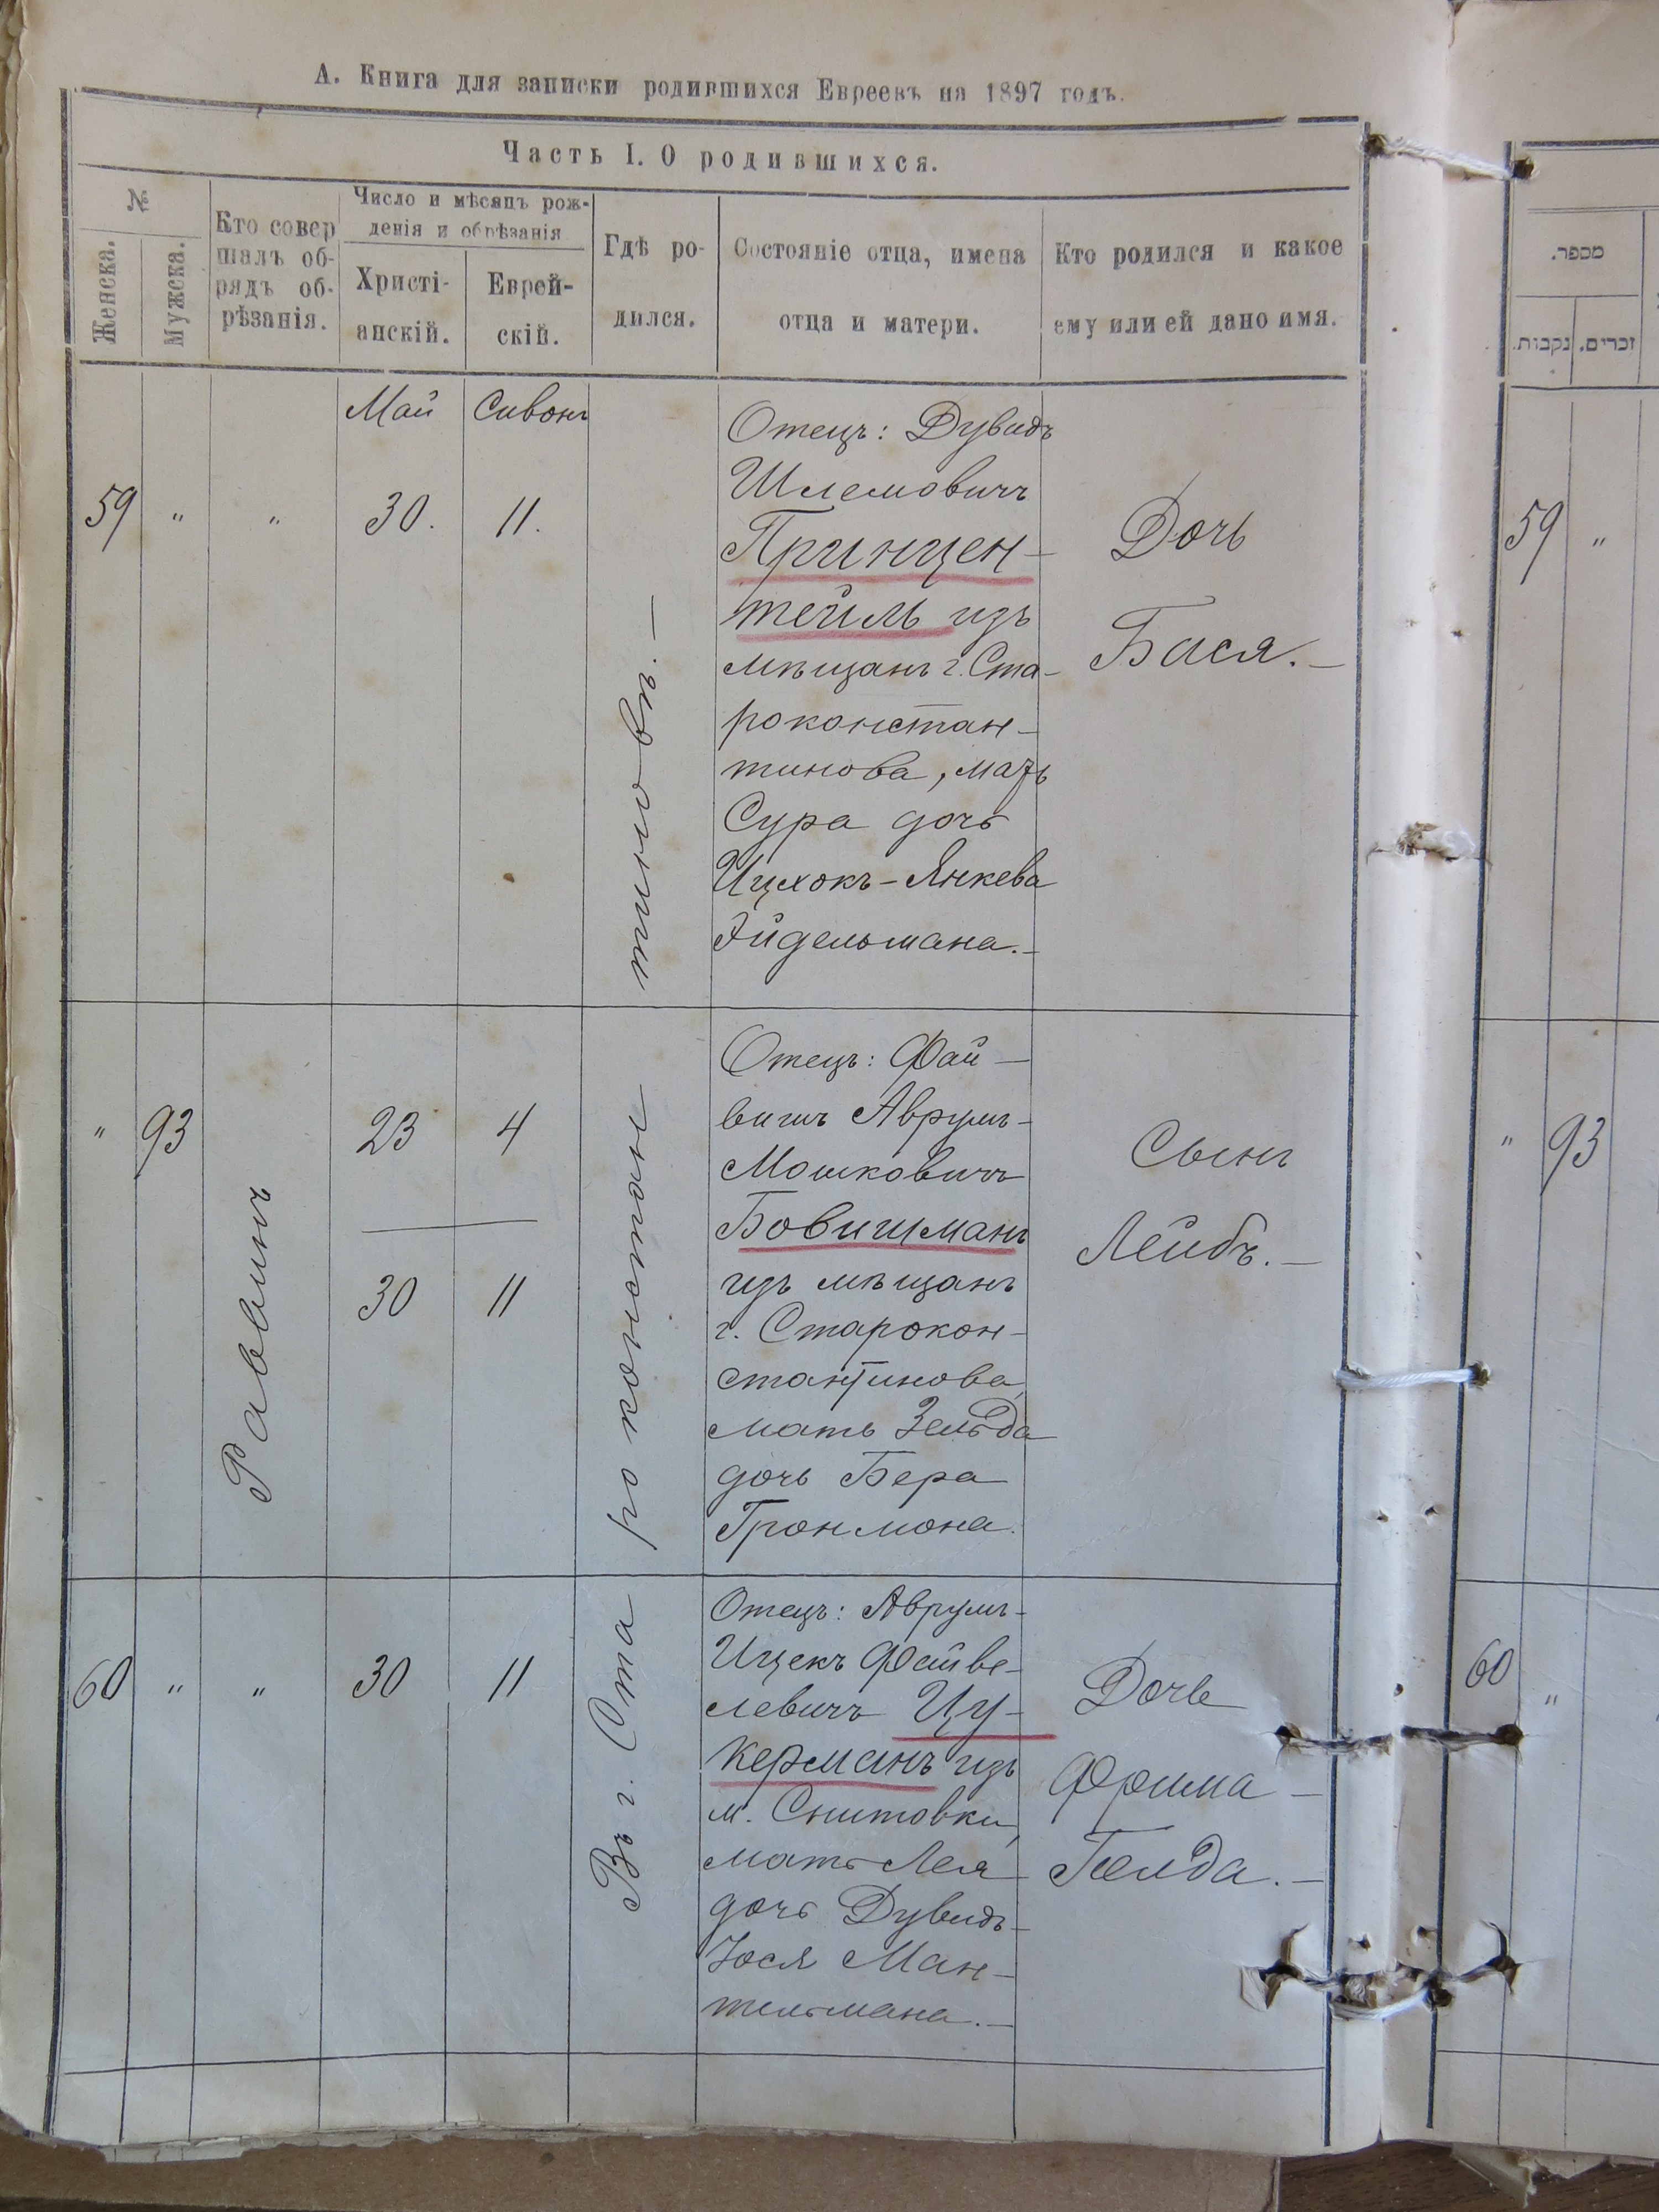 А. Книга для записки родившихся Евреевъ на 1897 годъ.
Часть I. О родившихся.
№
Женска.
Мужска.
Кто совер
шалъ об-
рядъ об-
рѣзанія.
Число и мѣсяцъ рож-
денія и обрѣзанія
Христі-
анскій.
Еврей-
скій.
Гдѣ ро-
дился.
Состояніе отца, имена
отца и матери.
Кто родился и какое
ему или ей дано имя.
Май
Сивонъ
59 " " 30. 11.
Отецъ: Дувидъ
Шлемовичъ
Принцен-
тейль изъ
мѣщанъ г. Ста-
роконстан-
тинова, мать
Сура дочь
Ицхокъ-Янкева
Эйдельмана.-
Дочь
Бася.-
" 93
Раввинъ
23 4
30 11
Отецъ: Фай-
вишъ Аврумъ-
Мошковичъ
Бовишманъ
изъ мѣщанъ
г. Старокон-
стантинова,
мать Зельда
дочь Бера
Тронмона.
Сынъ
Лейбъ.-
60 " " 30 11
Отецъ: Аврумъ-
Ицекъ Файве-
левичъ Цу-
керманъ изъ
м. Снитовки,
мать Лея
дочь Дувидъ-
Йося Ман-
тельмана.-
Дочь
Фрима-
Голда.-
Въ г. Ста
роконстан
тиновѣ.-
מספר.
נקבות.
זכרים.
59 "
" 93
60 "